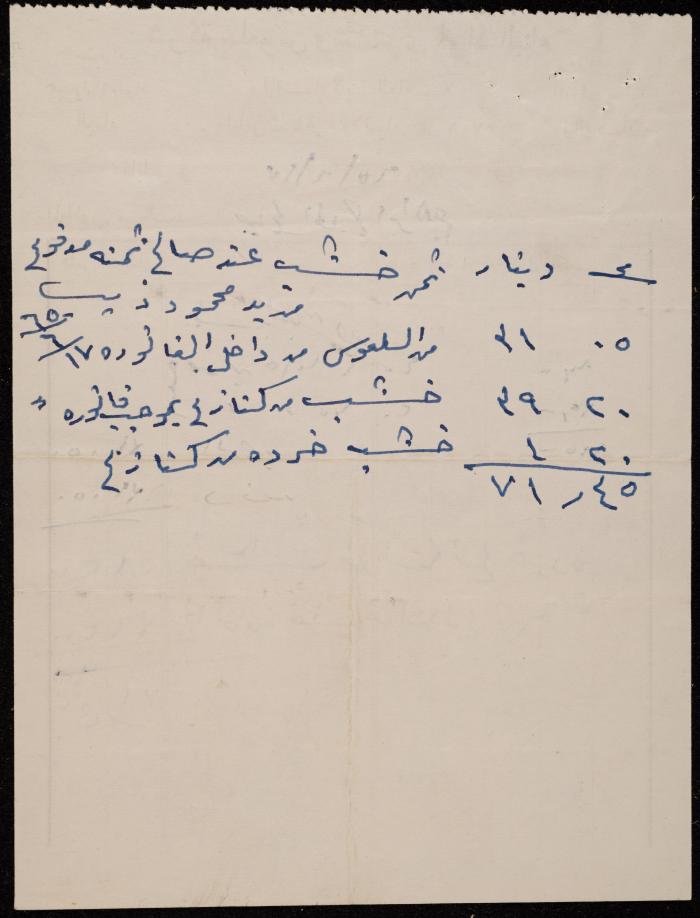 مـ دينار ثمن خشب عند صالح ثمنه مدفوع
من يد محمود ذيب
٠٥ ٣١ من السلعوس من داخل الفاتوره ١٧/٦/٦٥
٢٠ ٣٩ خشب من كنازع بموجب فاتوره "
٢٠ ١ خشب خرده من كنازع
٧١,٤٥